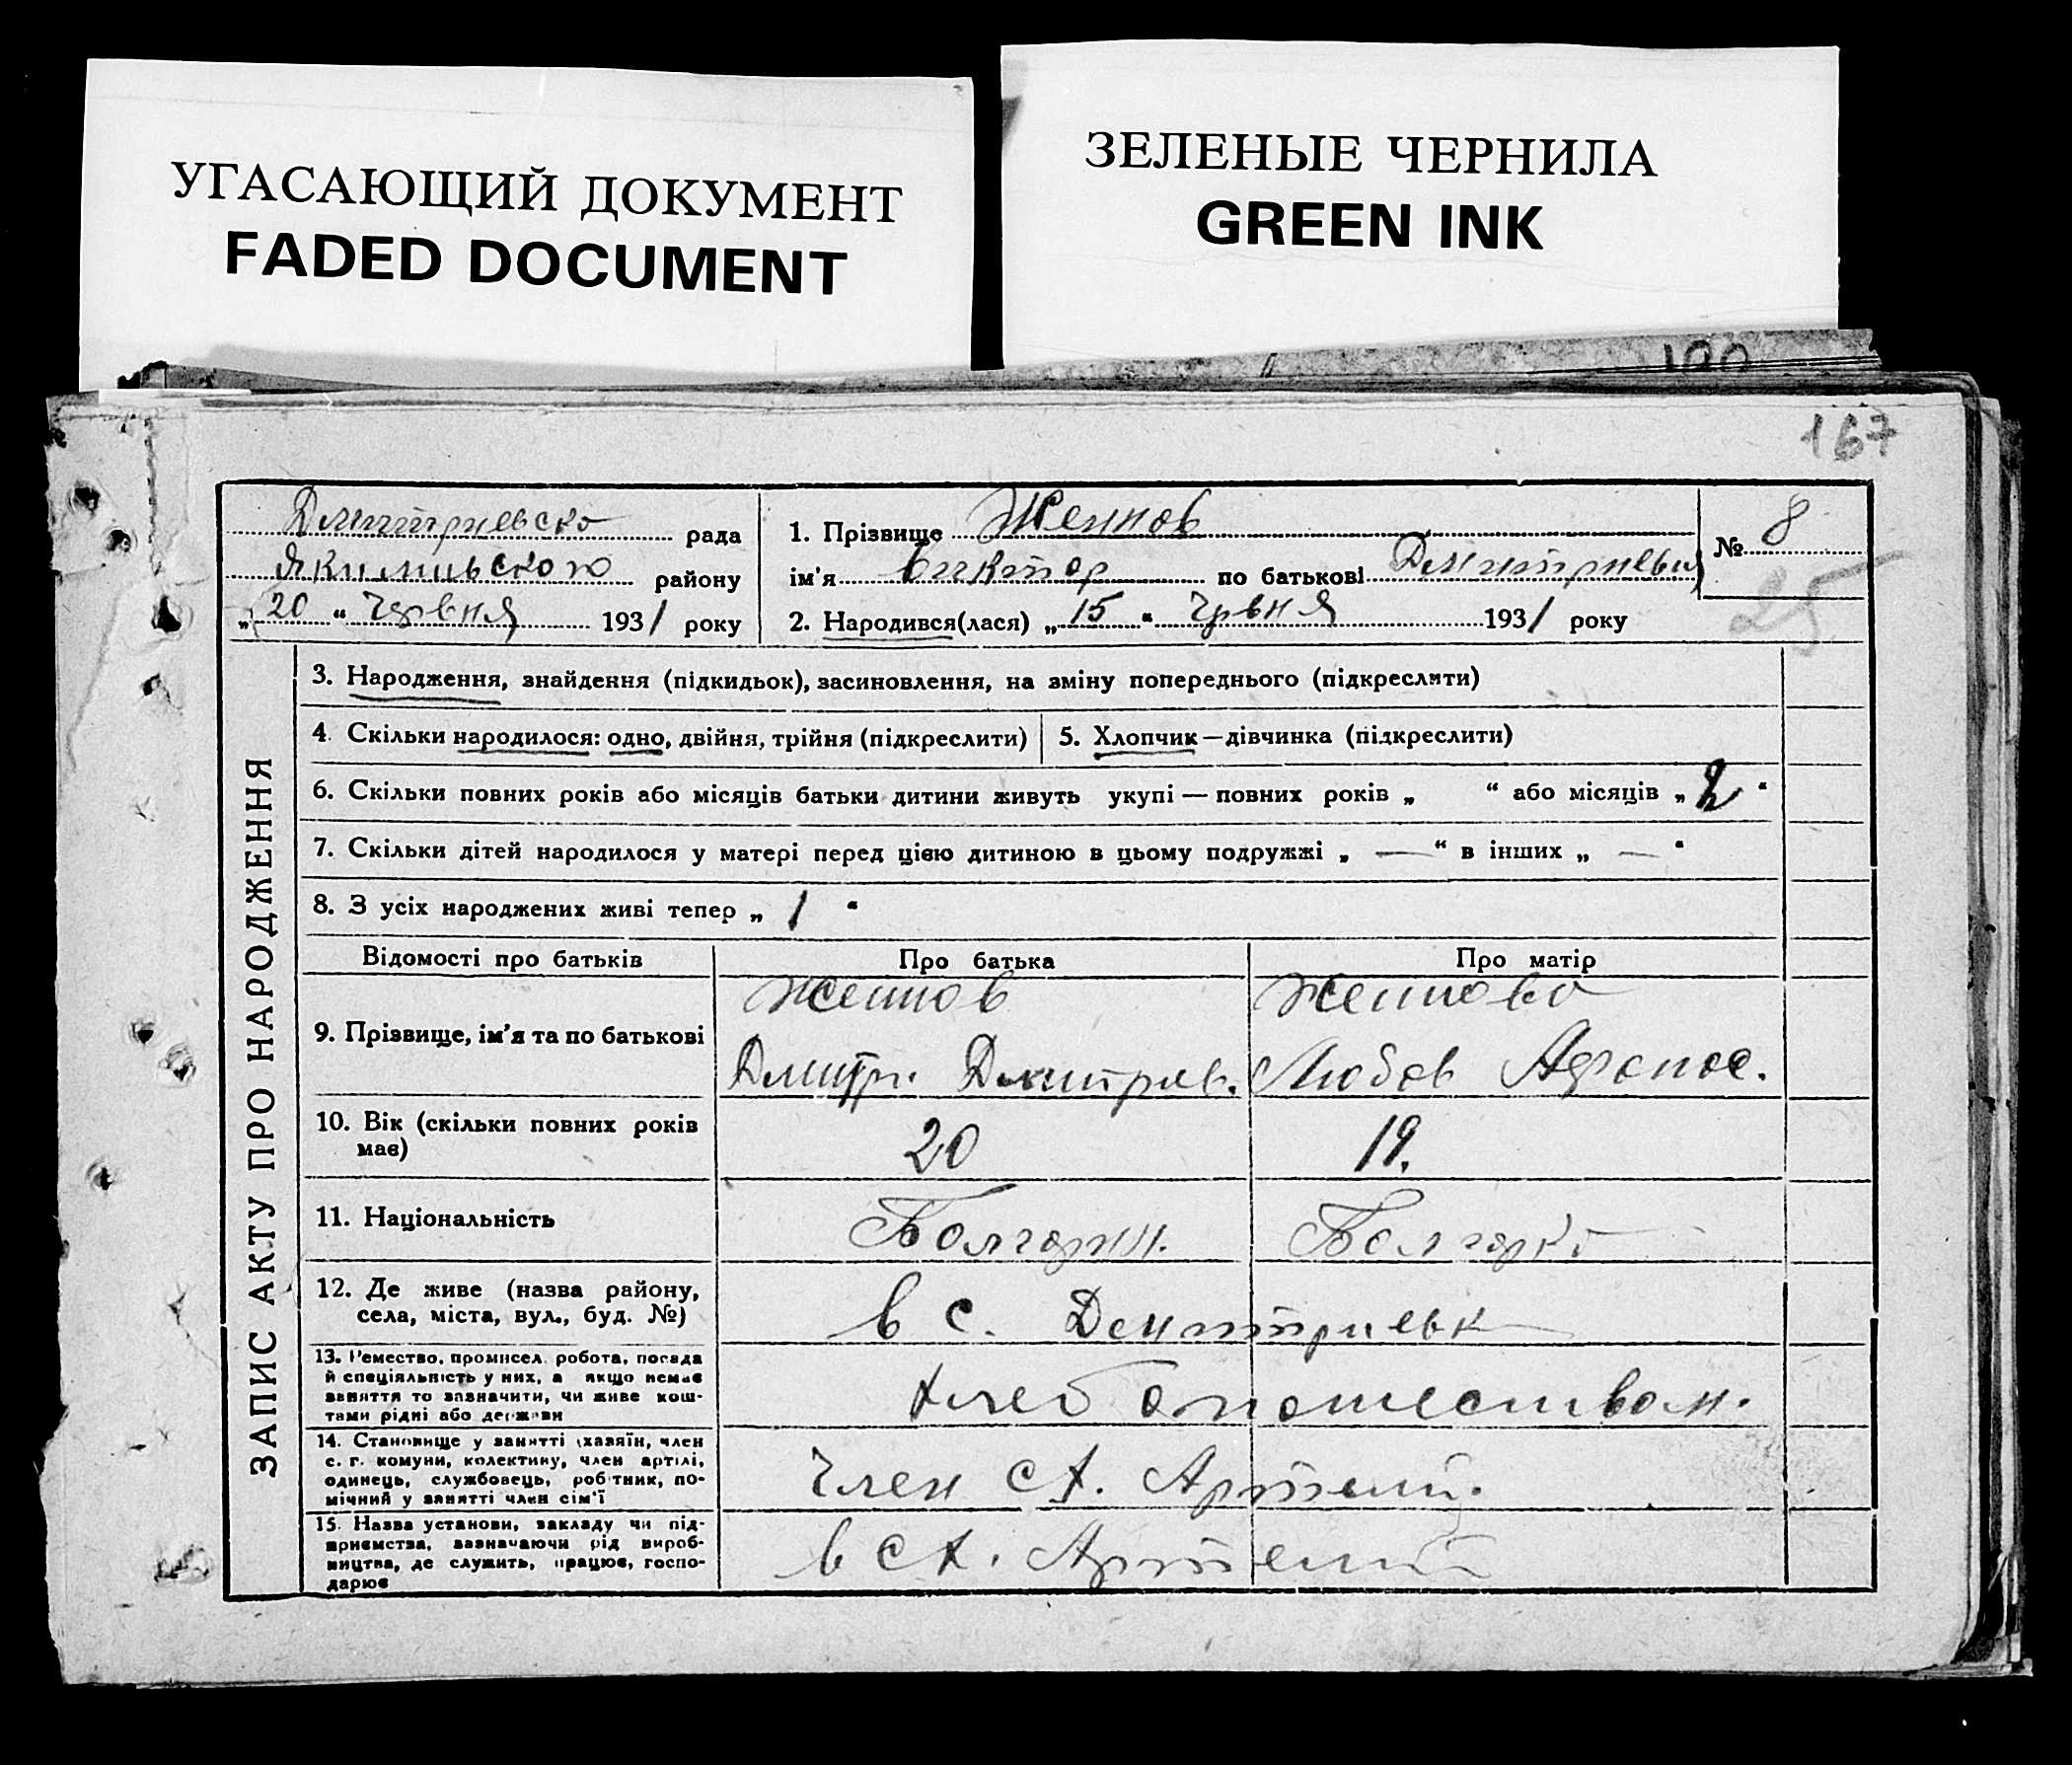 УГАСАЮЩИЙ ДОКУМЕНТ
FADED DOCUMENT
ЗЕЛЕНЫЕ ЧЕРНИЛА
GREEN INK
167
Дмитриевско рада
Якимивського району
„20“ Червня 1931 року
1. Прізвище
ім'я Виктор по батькові Дмитриевич
2. Народився(лася) „15“ Червня 1931 року
№ 8
25
ЗАПИС АКТУ ПРО НАРОДЖЕННЯ
3. Народження, знайдення (підкидьок), засиновлення, на зміну попереднього (підкреслити)
4. Скільки народилося: одно, двійня, трійня (підкреслити)
5. Хлопчик—дівчинка (підкреслити)
6. Скільки повних років або місяців батьки дитини живуть укупі — повних років „ “ або місяців „ “
7. Скільки дітей народилося у матері перед цією дитиною в цьому подружжі „ — “ в інших „ — “
8. З усіх народжених живі тепер „ 1 “
Відомості про батьків Про батька Про матір
9. Прізвище, ім'я та по батькові
Дмитр. Дмитриев. Любов Афанас.
10. Вік (скільки повних років має) 20 19.
11. Національність Болгарин. Болгарка
12. Де живе (назва району, села, міста, вул., буд. №) в с. Дмитриевк
13. Ремество, промисел, робота, посада
й спеціяльність у них, а якщо немає
заняття то зазначити, чи живе кош-
тами рідні або держави
хлебопашеством.
14. Становище у занятті (хазяїн, член
с. г. комуни, колективу, член артілі,
одинець, службовець, робітник, по-
мічний у занятті член сім'ї
Член СХ. Артели.
15. Назва установи, закладу чи під-
приємства, зазначаючи рід вироб-
ництва, де служить, працює, госпо-
дарює
в СХ. Артели